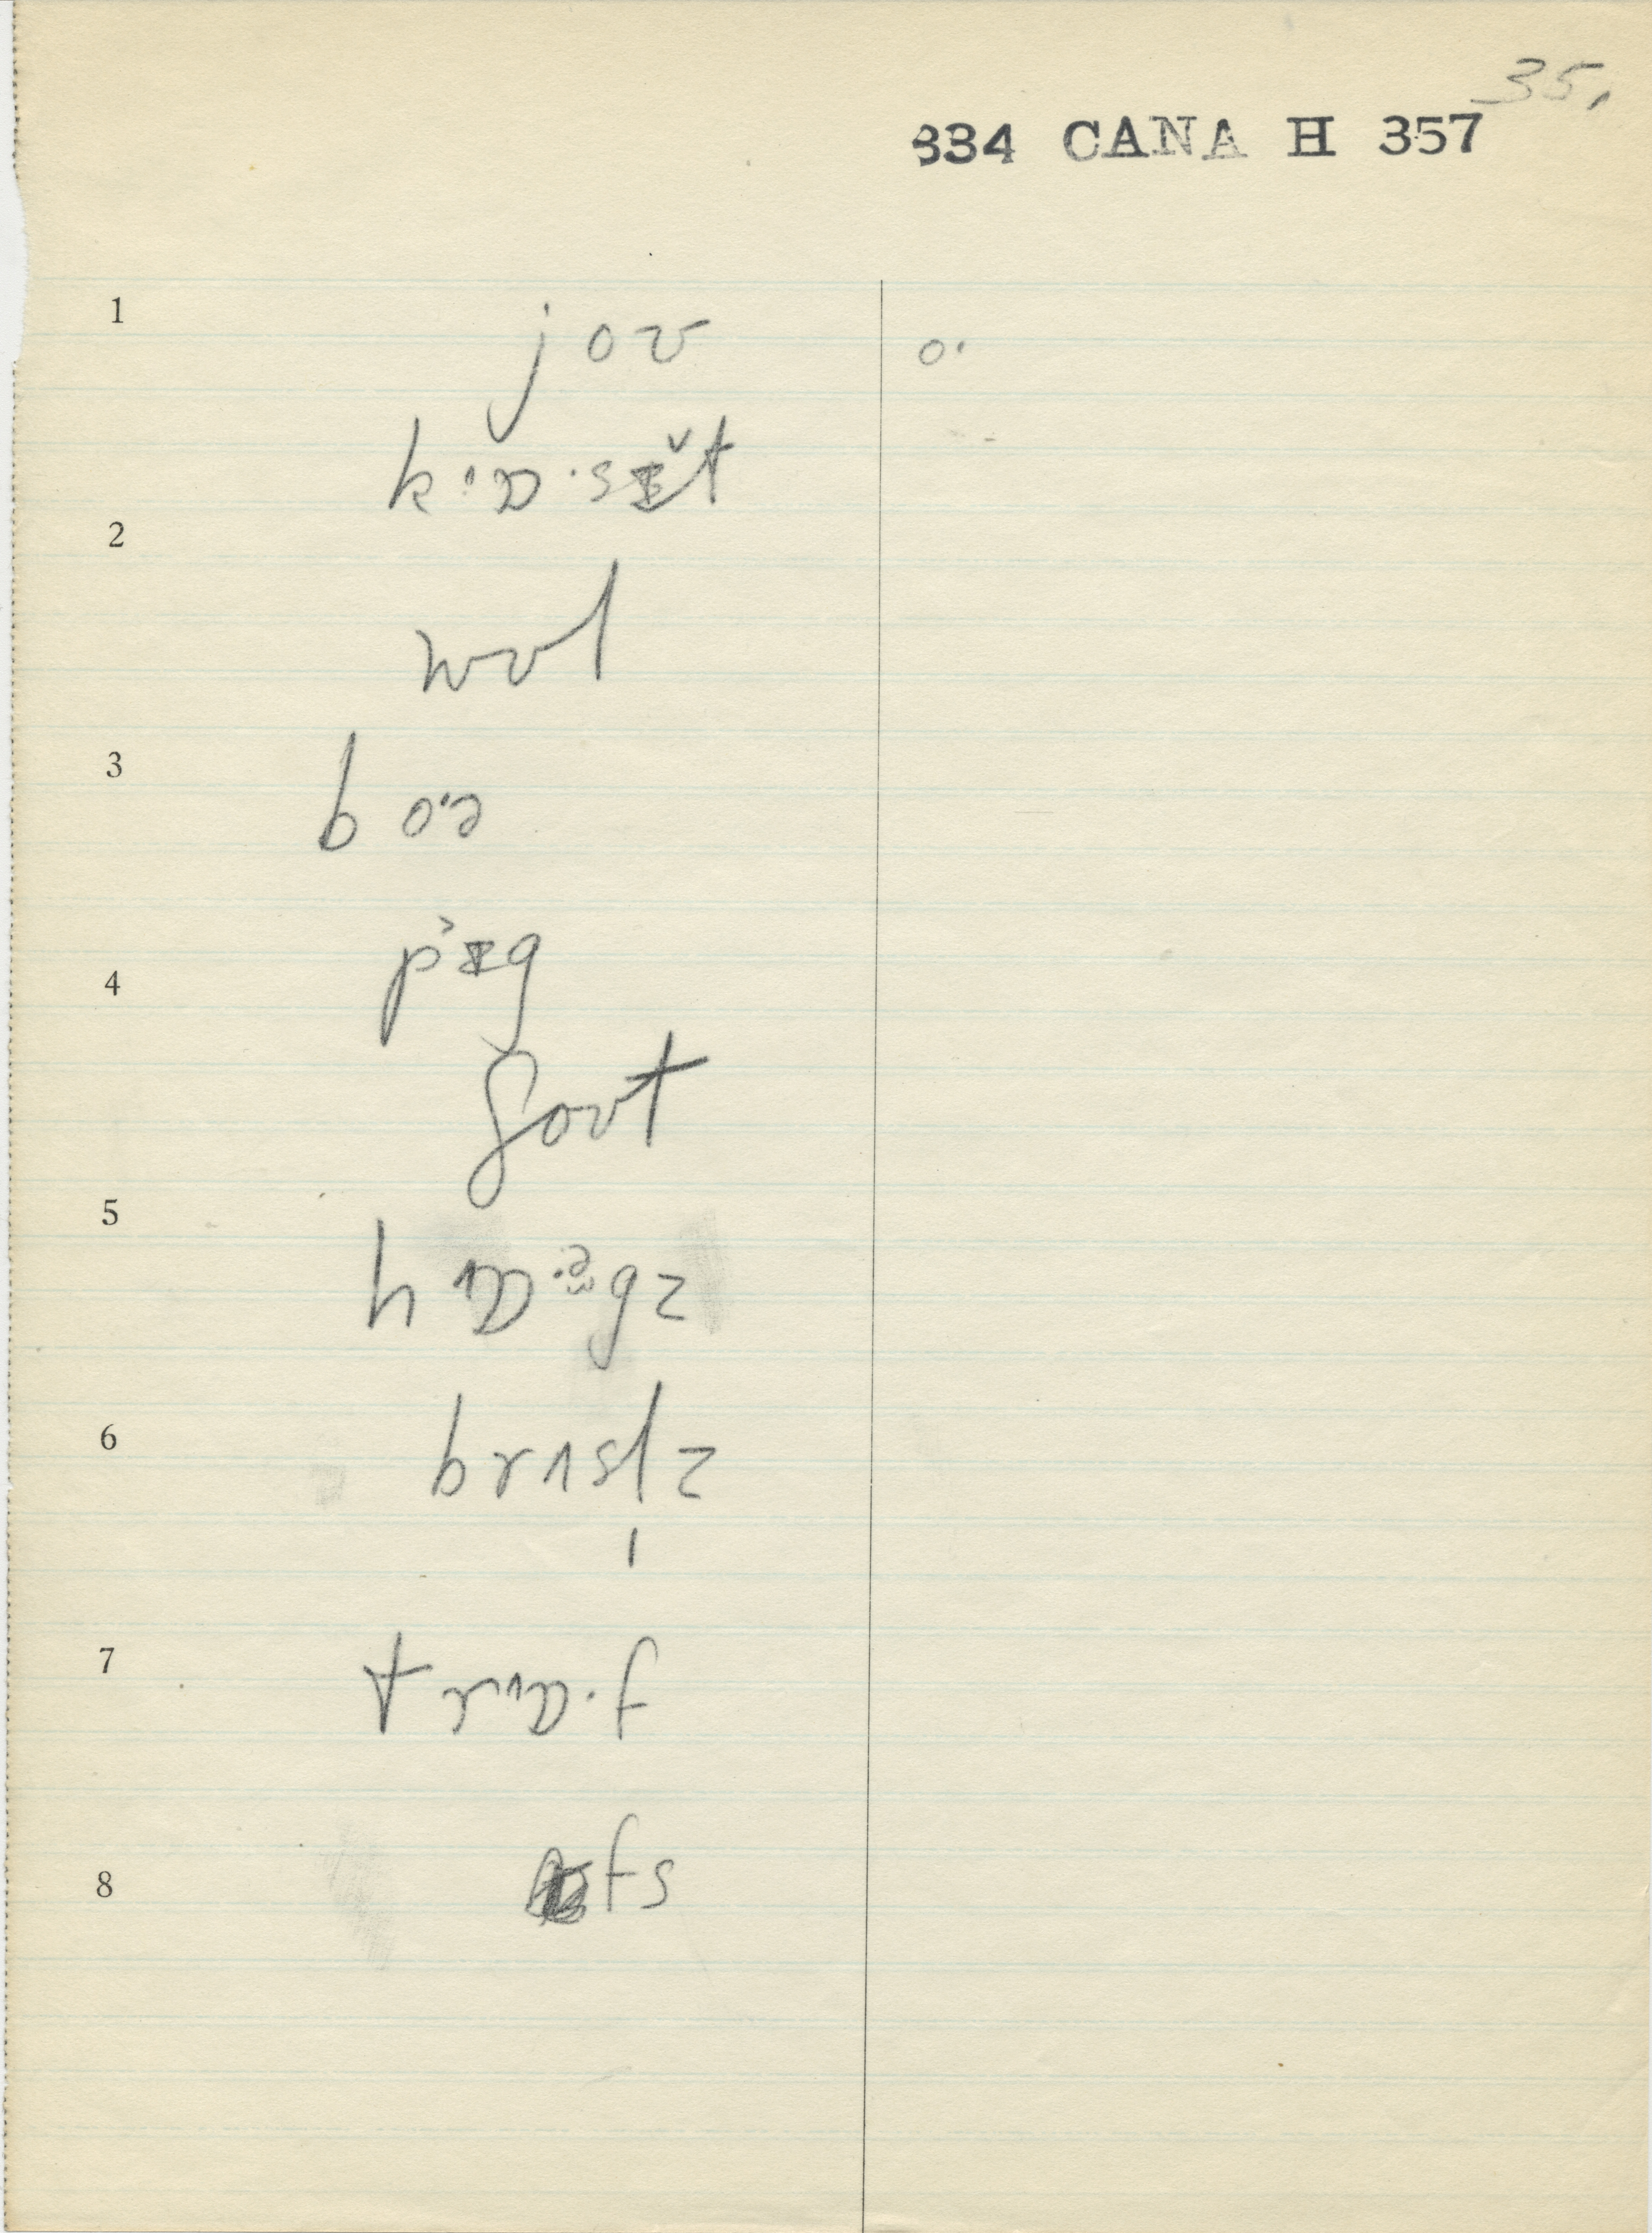 35.
334 CANA H 357
1
joʊ o·
kˈɒ·sɪ̆t
2
wʊl
3
boˑə
4
p˃ɪg
ʃoʊt
5
hɒˑᵊgz
6
brɪslz
7
trɒ·f
8
fs